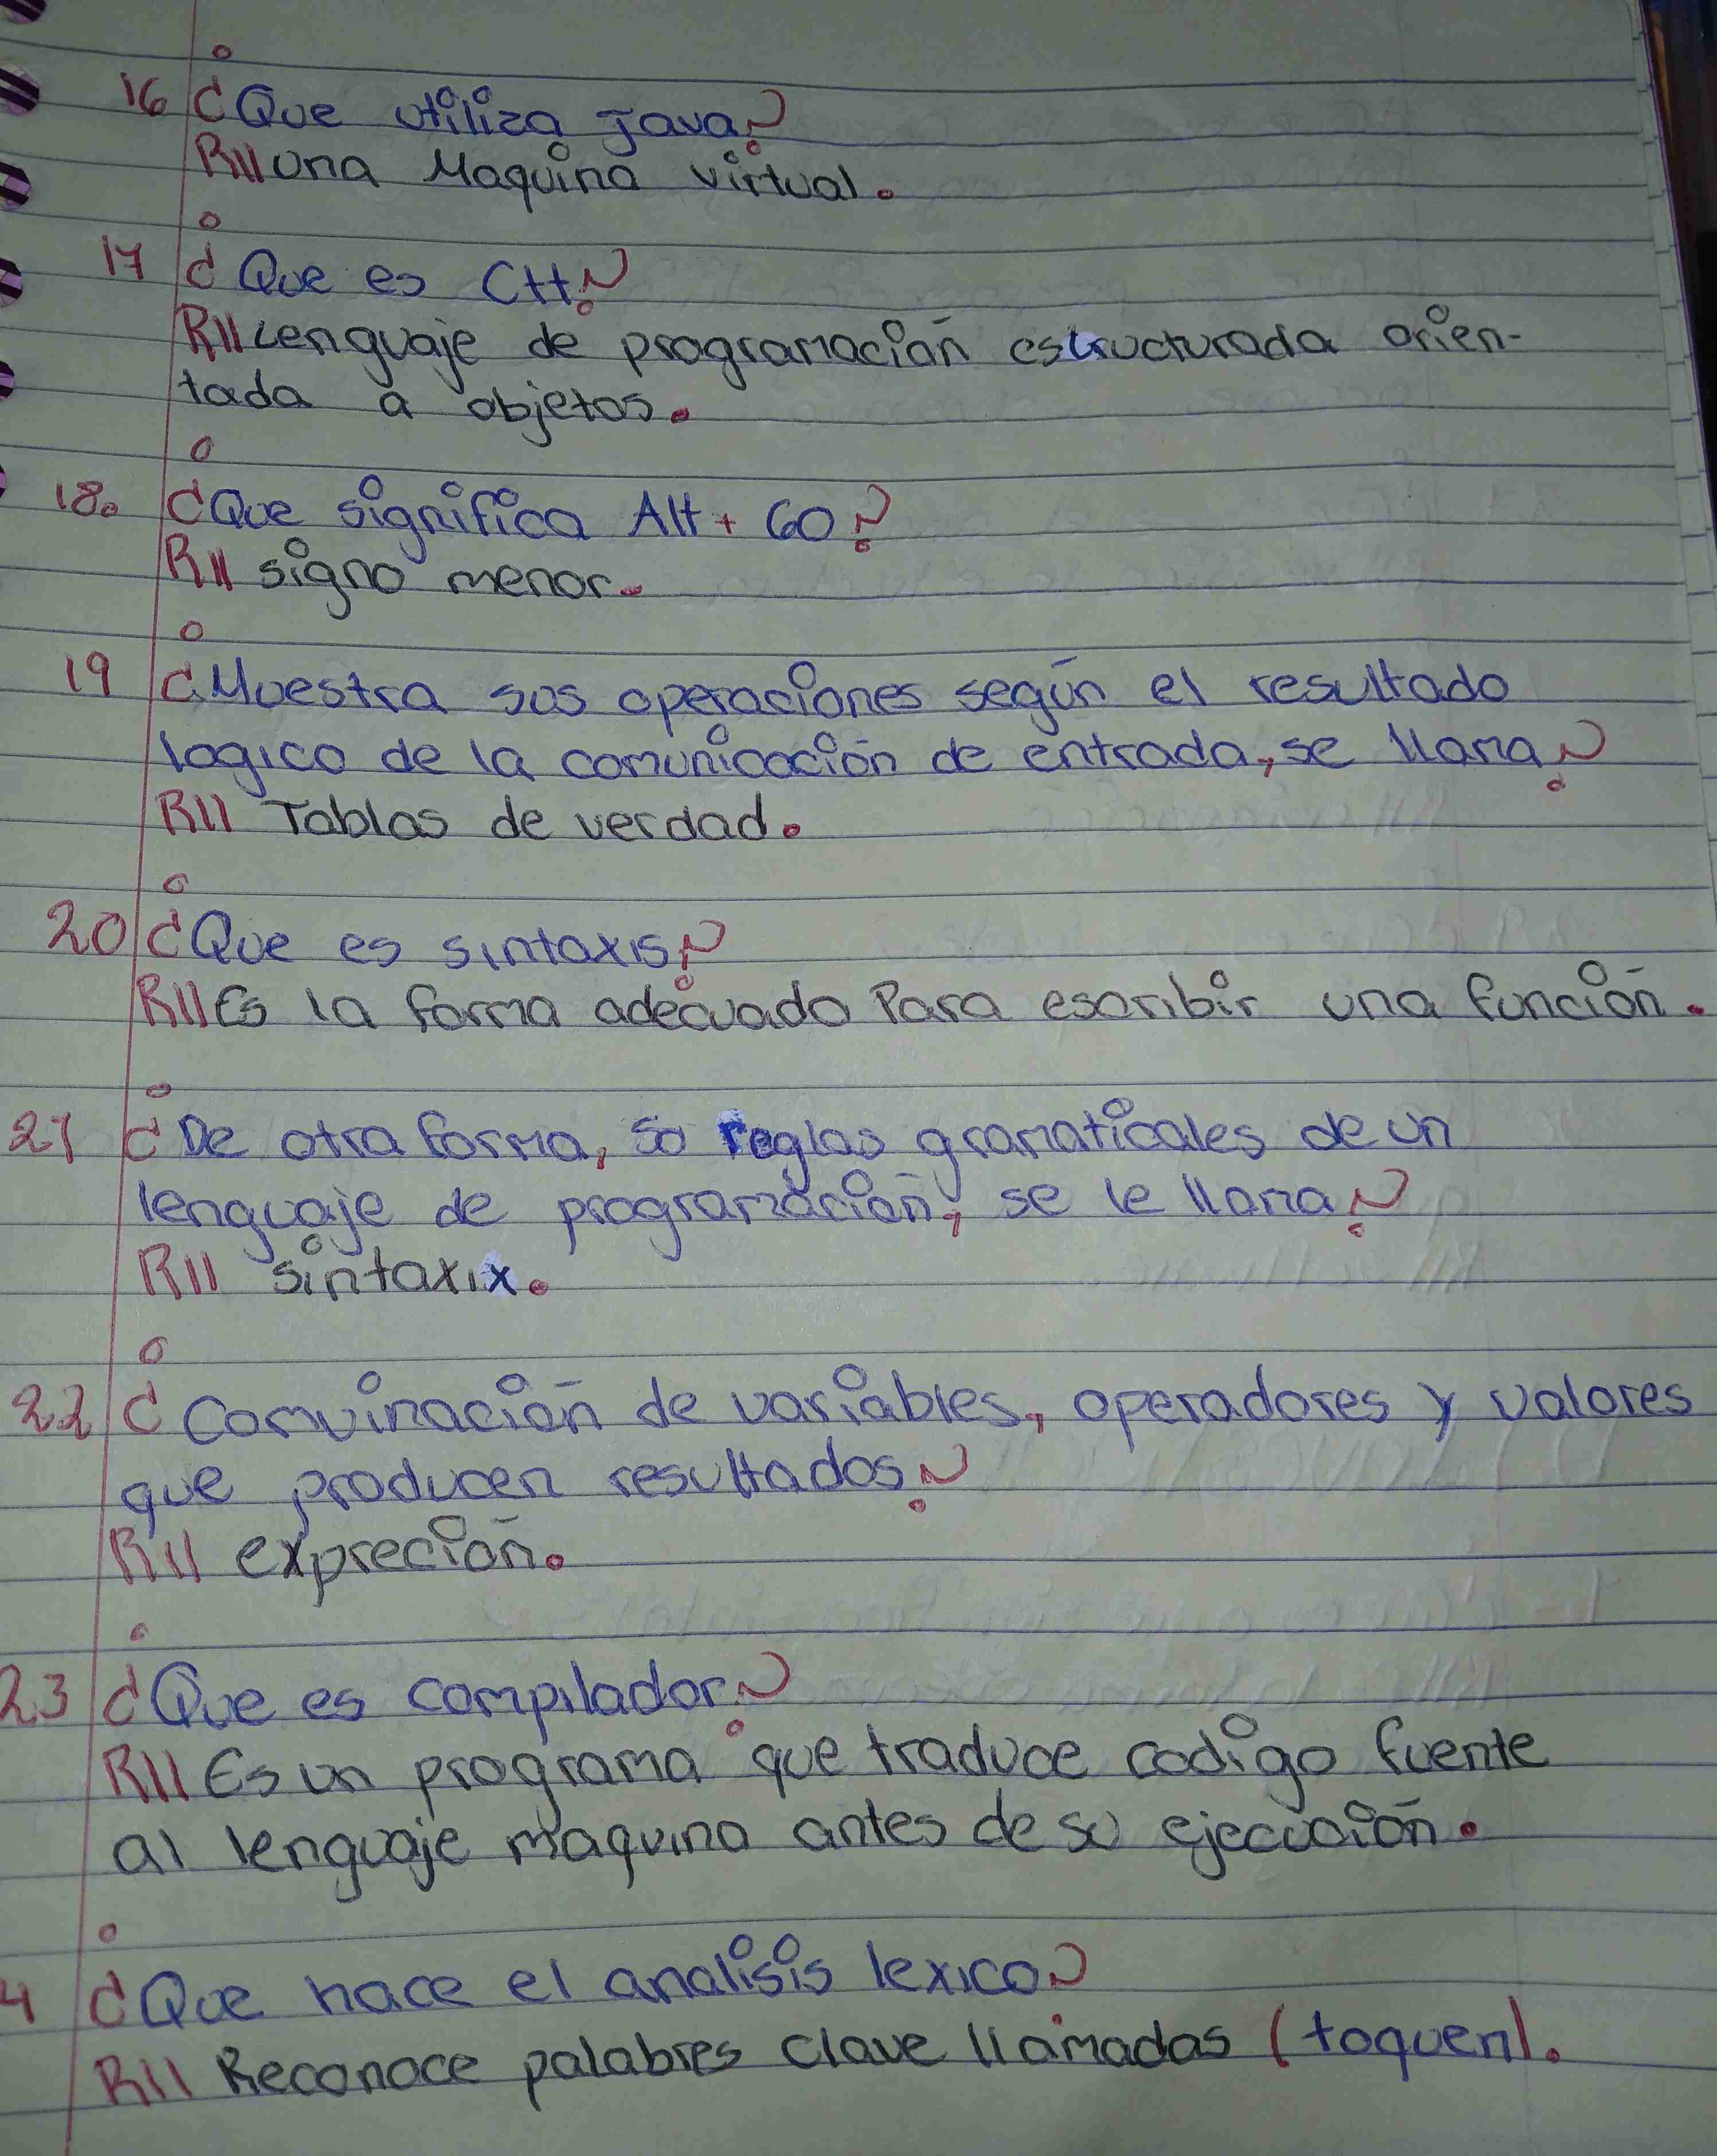 16 ¿Que utiliza Java?
R// una Maquina virtual.
17 ¿Que es C++?
R// Lenguaje de programación estructurada orien-
tada a objetos.
18. ¿Que significa Alt + 60?
R// signo menor.
19 ¿Muestra sus operaciones según el resultado
logico de la comunicación de entrada, se llama?
R// Tablas de verdad.
20 ¿Que es sintaxis?
R// Es la forma adecuado Para escribir una función.
21 ¿De otra forma, so reglas gramaticales de un
lenguaje de programación, se le llama?
R// sintaxix.
22 ¿Convinación de variables, operadores y valores
que producen resultados?
R// expreción.
23 ¿Que es compilador?
R// Es un programa que traduce codigo fuente
al lenguaje maquina antes de su ejecución.
4 ¿Que hace el analisis lexico?
R// Reconoce palabres clave llamadas (toquen).